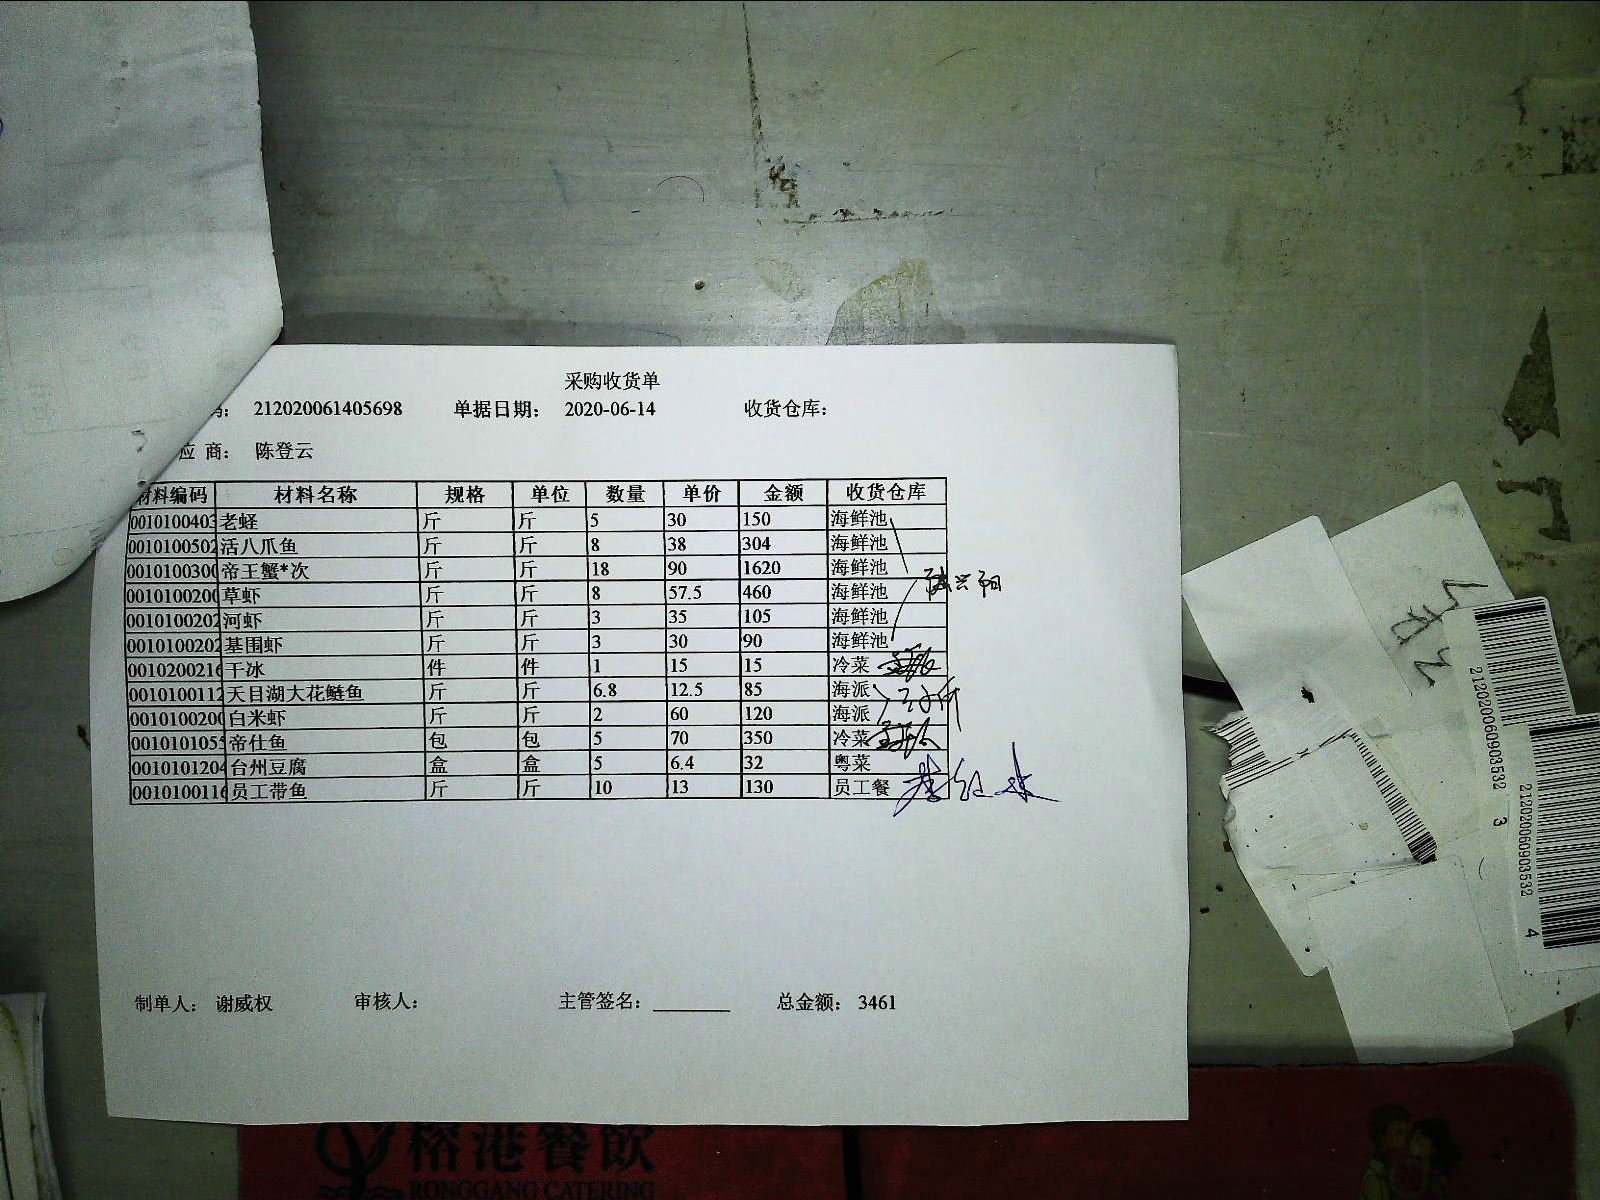 采购收货单
码： 212020061405698 单据日期： 2020-06-14 收货仓库：
应 商： 陈登云
材料编码 材料名称 规格 单位 数量 单价 金额 收货仓库
0010100403 老蛏 斤 斤 5 30 150 海鲜池
0010100502 活八爪鱼 斤 斤 8 38 304 海鲜池
0010100300 帝王蟹*次 斤 斤 18 90 1620 海鲜池
0010100200 草虾 斤 斤 8 57.5 460 海鲜池
0010100202 河虾 斤 斤 3 35 105 海鲜池
0010100202 基围虾 斤 斤 3 30 90 海鲜池
0010200216 干冰 件 件 1 15 15 冷菜
0010100112 天目湖大花鲢鱼 斤 斤 6.8 12.5 85 海派
0010100200 白米虾 斤 斤 2 60 120 海派
0010101055 帝仕鱼 包 包 5 70 350 冷菜
0010101204 台州豆腐 盒 盒 5 6.4 32 粤菜
0010100116 员工带鱼 斤 斤 10 13 130 员工餐
制单人： 谢威权 审核人： 主管签名： 总金额： 3461
212020060903532 3
212020060903532 4
榕港餐饮
RONGGANG CATERING